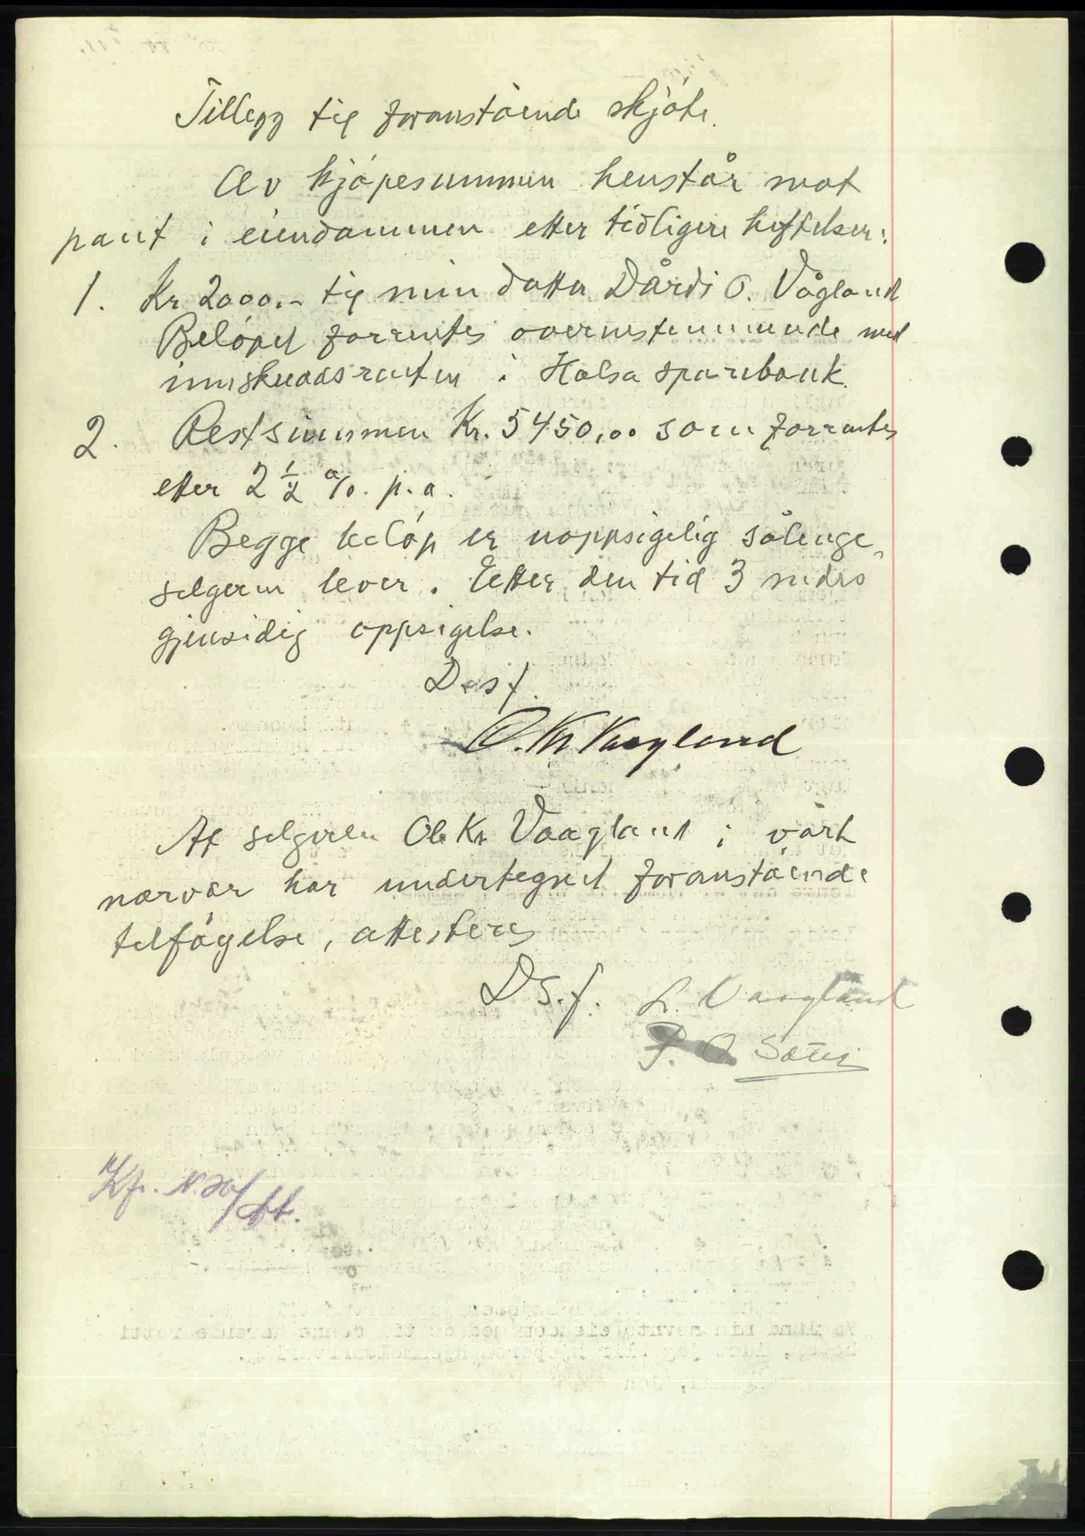 Tillegg til foranstående skjöte.
Av kjöpesummen henstår mot
pant i eiendommen etter tidligere heftelser:
1. Kr. 2000.- til min datter Dårdi O. Vågland
Belöpet forrentes overenstemmende med
innskuddsrenten i Halsa sparebank.
2. Restsummen Kr. 5450,00 som forrentes
etter 2 1/2 %. p.a.
Begge belöp er uoppsigelig sålenge
selgeren lever. Etter den tid 3 mdrs
gjensidig oppsigelse.
D.s.f.
O. Kr Vaagland
At selgeren Ole Kr. Vaagland i vårt
nærvær har undertegnet foranstående
tilföyelse, attesteres
D.S.f. L. Vaagland
P. O. Sæter
Kfr.